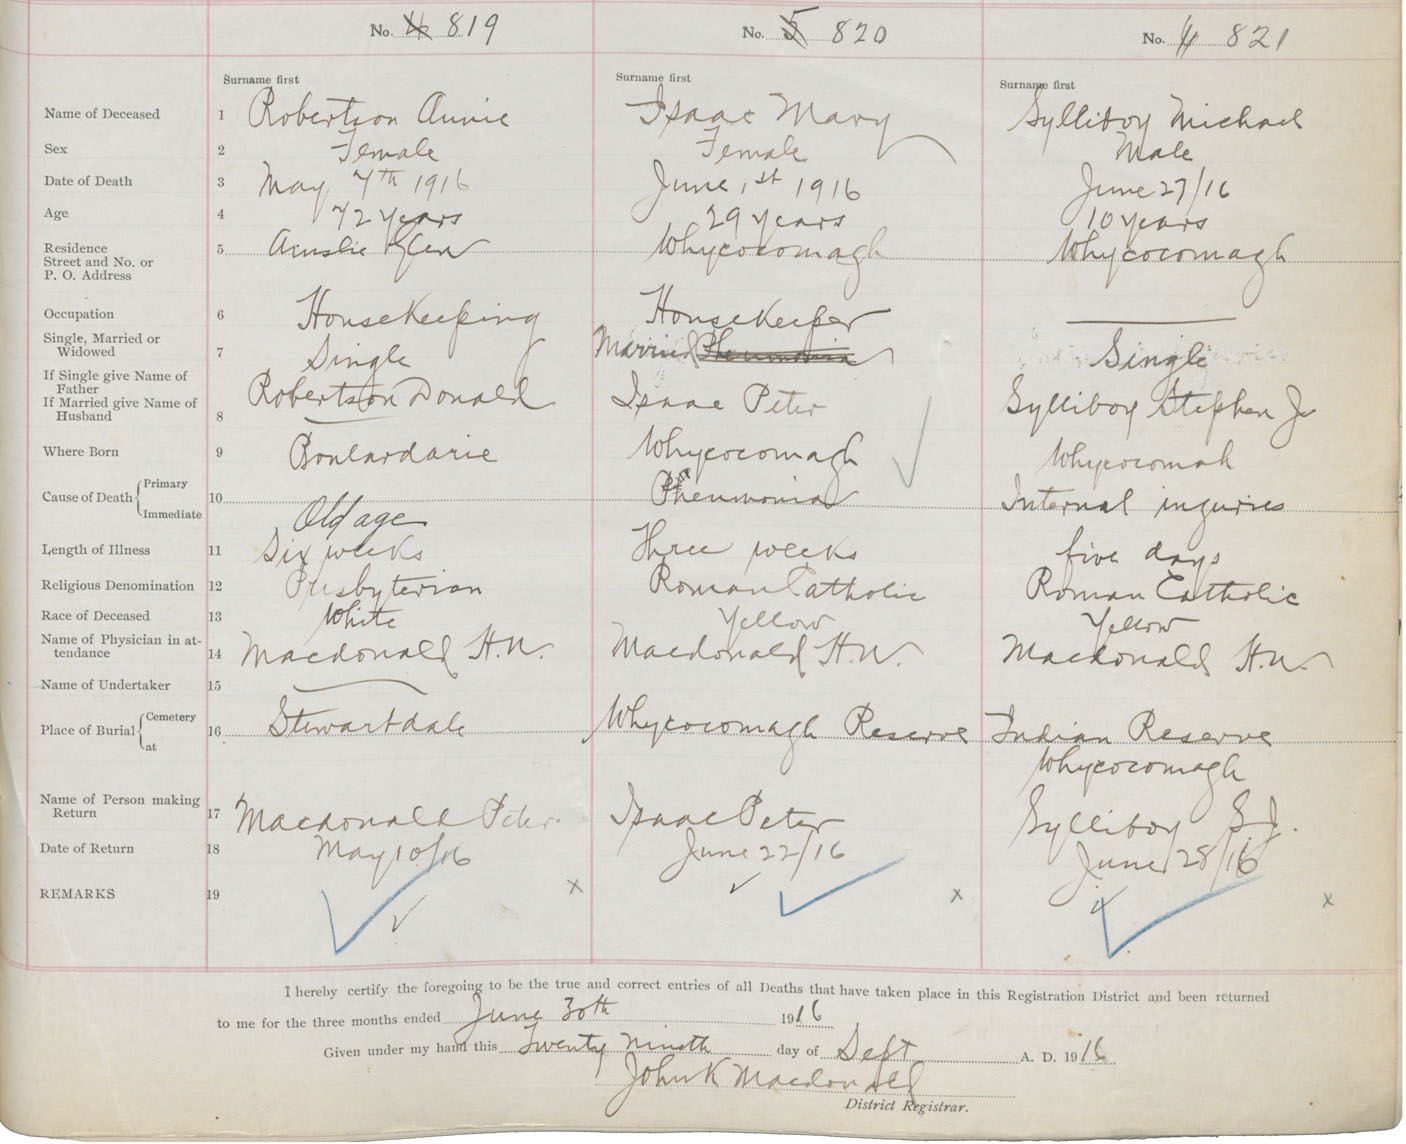 No. 4 819 No. 5 820 No. 6 821
Surname first Surname first Surname first
Name of Deceased 1 Robertson Annie Isaac Mary Sylliboy Michael
Sex 2 Female Female Male
Date of Death 3 May 7th 1916 June 1st 1916 June 27/16
Age 4 72 years 29 years 10 years
Residence 5 Ainslie Glen Whycocomagh Whycocomagh
Street and No. or
P. O. Address
Occupation 6 HouseKeeping HouseKeeper
Single, Married or
Widowed 7 Single Married Pheumonia Single
If Single give Name of
Father
If Married give Name of
Husband 8 Robertson Donald Isaac Peter Sylliboy Stephen J
Where Born 9 Boulardarie Whycocomagh Whycocomah
Cause of Death { Primary
Immediate 10 Old age Pheumonia Internal inguries
Length of Illness 11 Six weeks Three weeks five days
Religious Denomination 12 Presbyterian Roman Catholic Roman Catholic
Race of Deceased 13 White Yellow Yellow
Name of Physician in at-
tendance 14 Macdonald H.N. Macdonald H.N. Macdonald H.N.
Name of Undertaker 15
Place of Burial { Cemetery
at 16 Stewartdale Whycocomagh Reserve Indian Reserve
Whycocomagh
Name of Person making
Return 17 Macdonald Peter. Isaac Peter Sylliboy S.J.
Date of Return 18 May 10/16 June 22/16 June 28/16
REMARKS 19 x x x
I hereby certify the foregoing to be the true and correct entries of all Deaths that have taken place in this Registration District and been returned
to me for the three months ended June 30th 1916
Given under my hand this Twenty ninth day of Sept A. D. 1916
John K Macdonald
District Registrar.